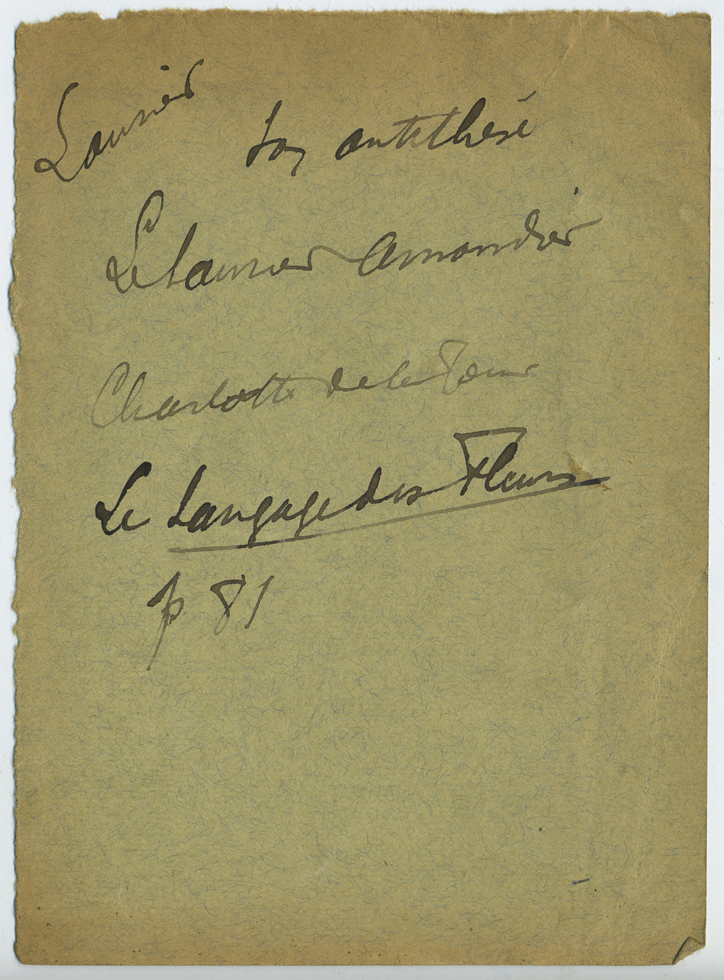 Laurier
Son antithèse
Le laurier amandier
Charlotte de la Tour
Le Langage des Fleurs
p 81